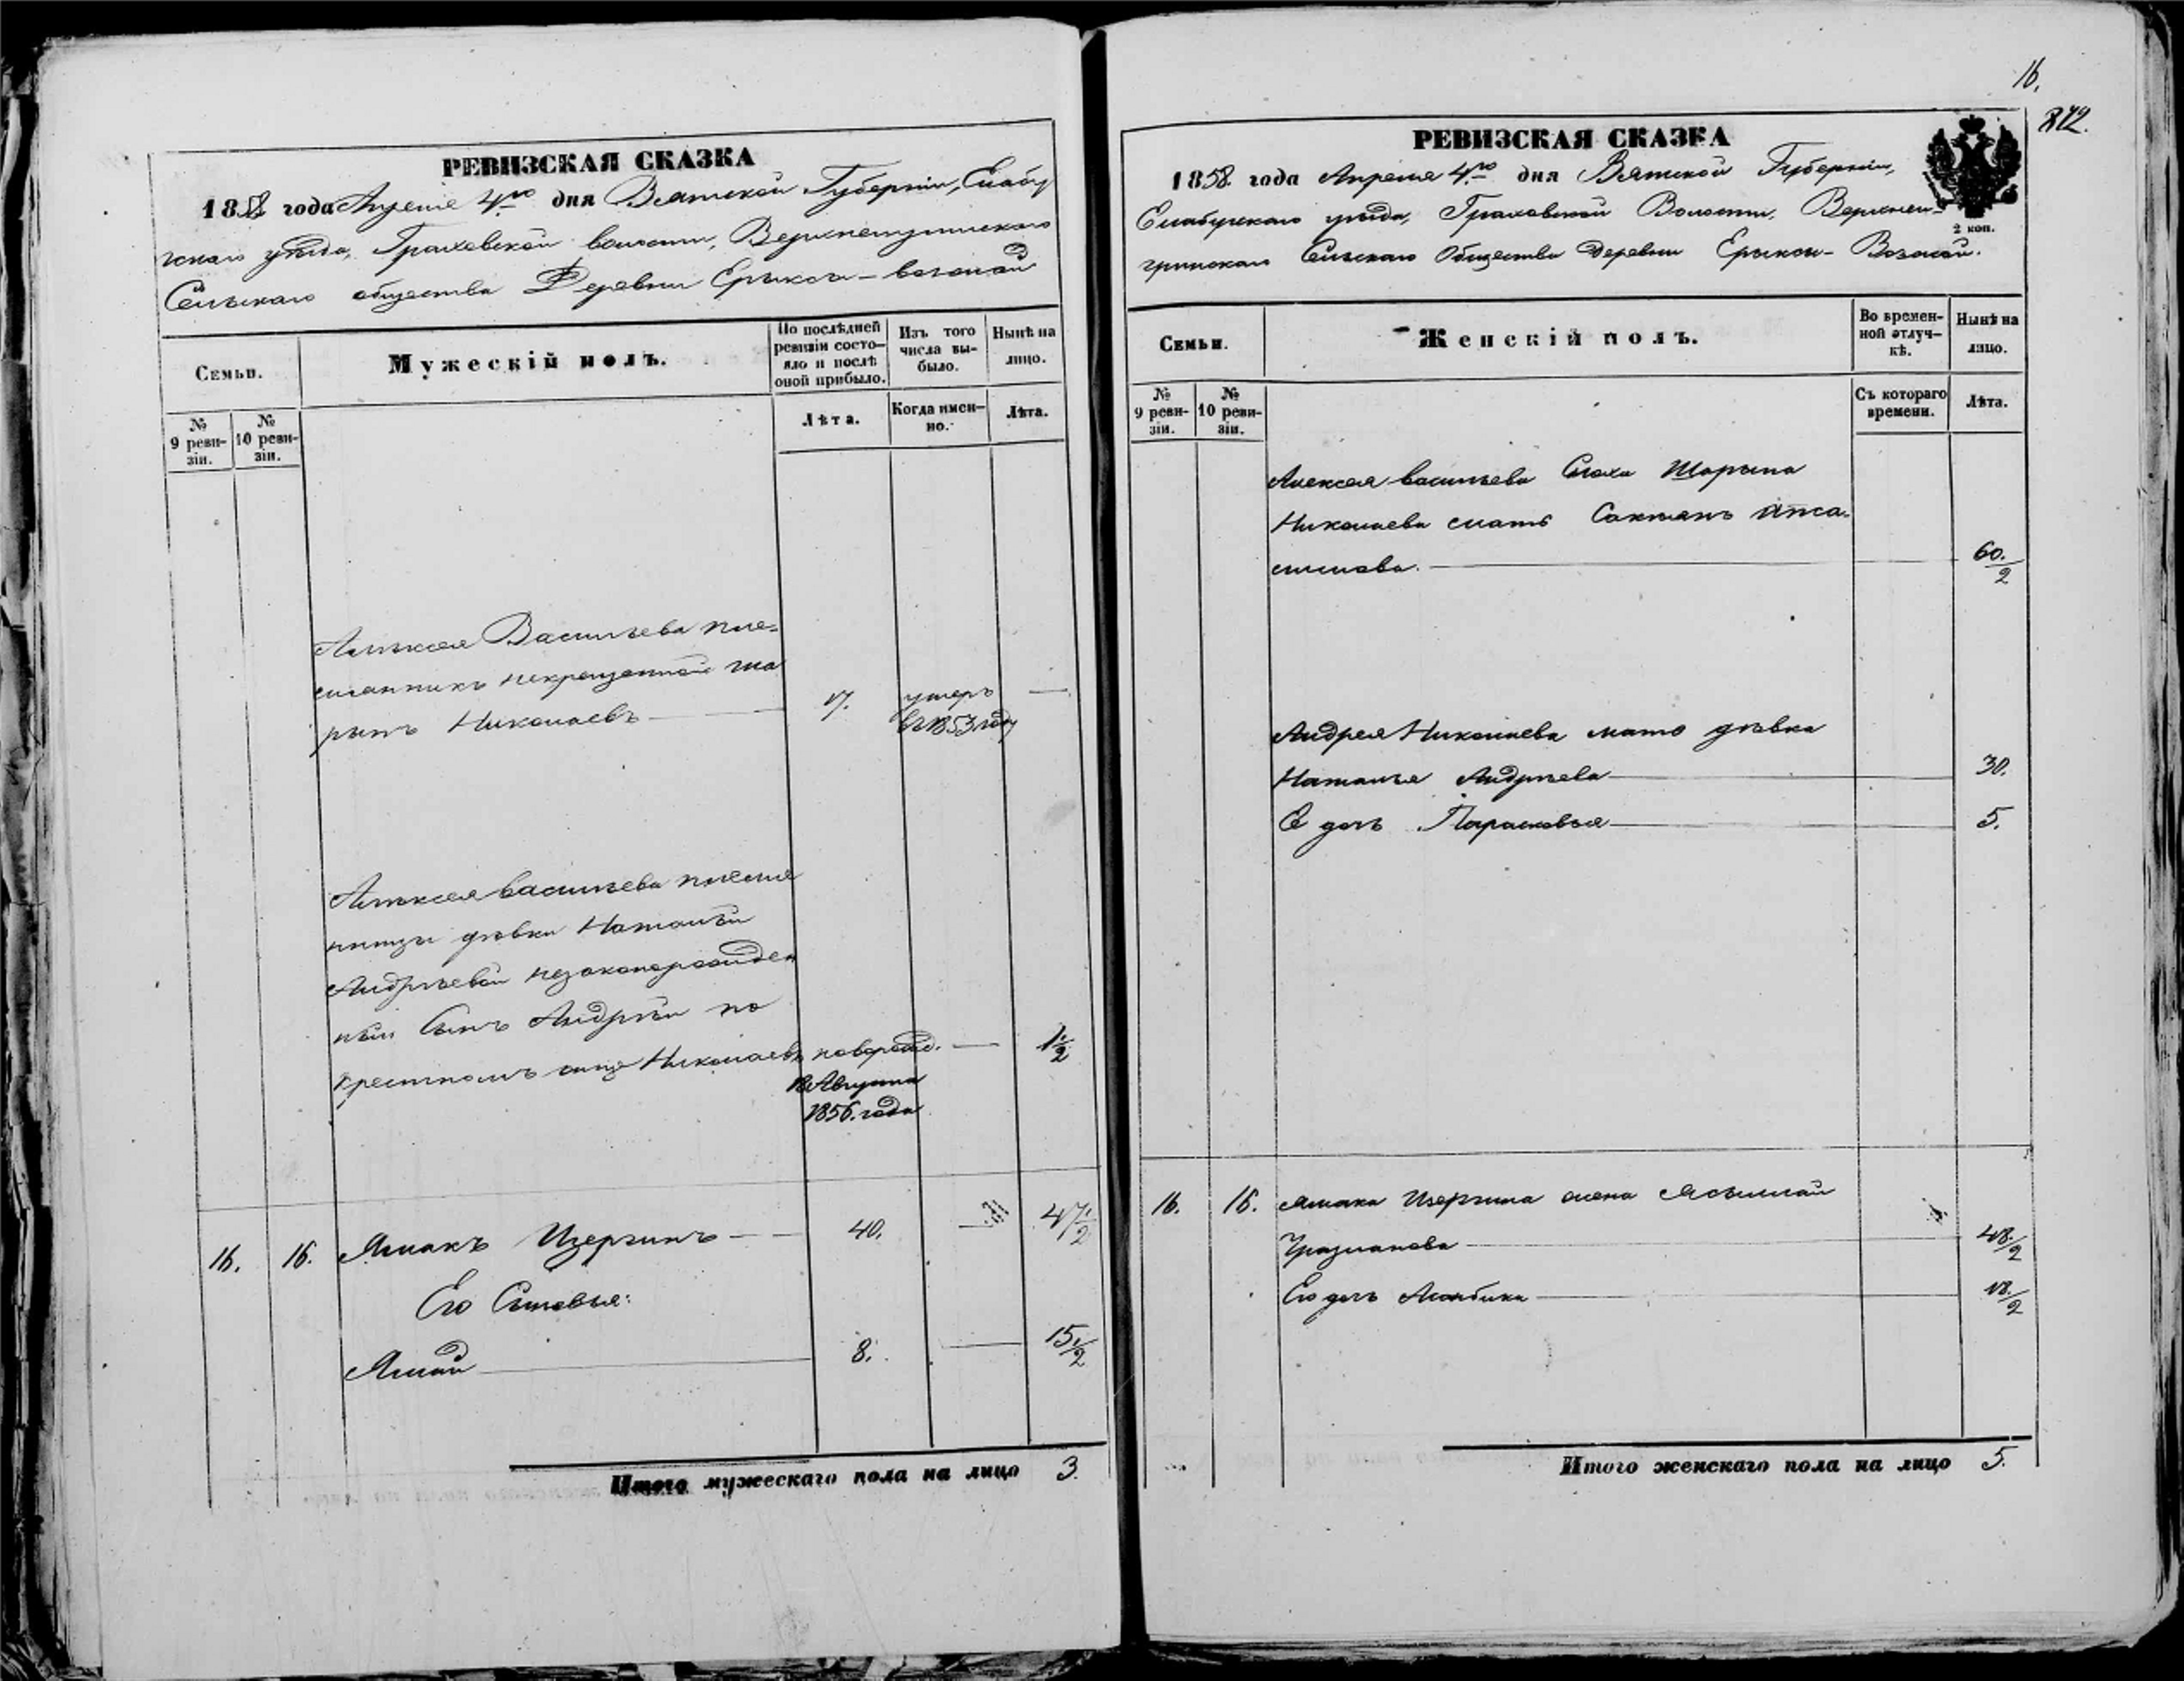 РЕВИЗСКАЯ СКАЗКА
1858 года Апреля 4го дня Вятской Губернiи, Елабу
жскаго уѣзда, Граховской волости,
Сельскаго общества Деревни Ерыксы-
Семьи.
Мужескiй полъ.
По послѣдней ревизiи состо-
яло и послѣ
оной прибыло.
Изъ того
числа вы-
было.
Нынѣ на
лицо.
№
9 реви-
зiи.
№
10 реви-
зiи.
Лѣта.
Когда имен-
но.
Лѣта.
Алексея Васильева пле-
мянникъ некрещенной Ша
рыпъ Николаевъ
17.
умеръ
въ 1853 году
Алексея Васильева племя
ницы дѣвки Натальи
Андрѣевой незаконорожден
ный Сынъ Андрѣй по
крестномъ отцѣ Николаевъ
новорожд.
18 Августа
1856. года
1 1/2
16.
16.
Ямакъ
40.
47 1/2
Его Сыновья:
8.
15 1/2
Итого мужескаго пола на лицо 3.
16.
РЕВИЗСКАЯ СКАЗКА
1858 года Апреля 4го дня Вятской Губернiи,
Елабужскаго уезда, Граховской Волости,
Сельскаго Общества Деревни Ерыксы-
2 коп.
Семьи.
Женскiй полъ.
Во времен-
ной отлуч-
кѣ.
Нынѣ на
лицо.
№
9 реви-
зiи.
№
10 реви-
зiи.
Съ котораго
времени.
Лѣта.
Алексея Васильева Сноха Шарыпа
Николаева мать
60 1/2
Андрея Николаева мать дѣвка
Наталья Андрѣева
30.
Ея дочь Парасковья
5.
16.
16.
Ямака жена
Уразманова
48 1/2
Его дочь
18 1/2
Итого женскаго пола на лицо 5.